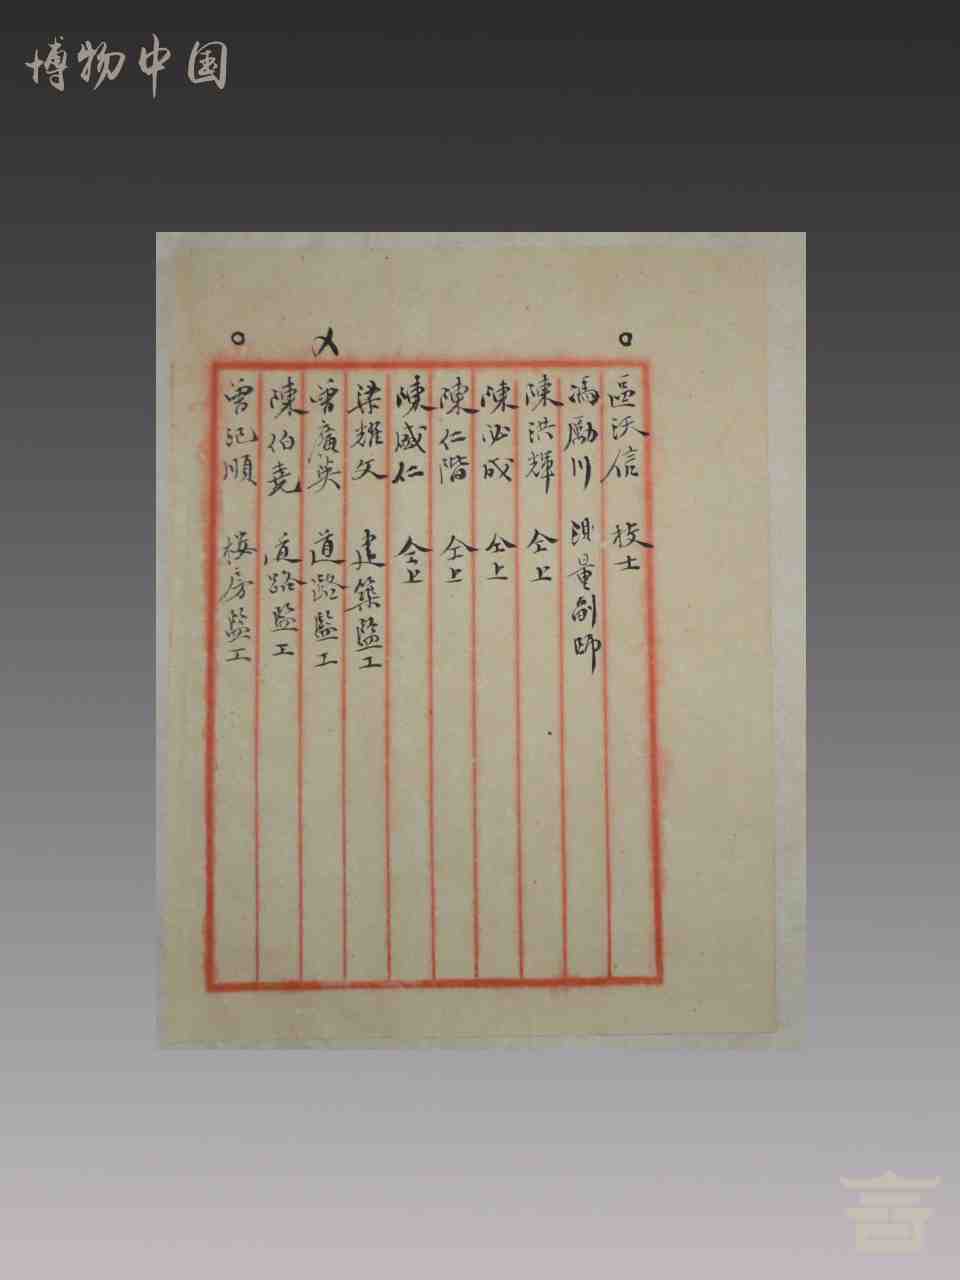 博物中国
區沃信 技士
馮勵川 測量副師
陳洪輝 仝上
陳必成 仝上
陳仁階 仝上
陳威仁 仝上
梁耀文 建築監工
曾廣英 道路監工
陳伯堯 道路監工
曾汜順 楼房監工